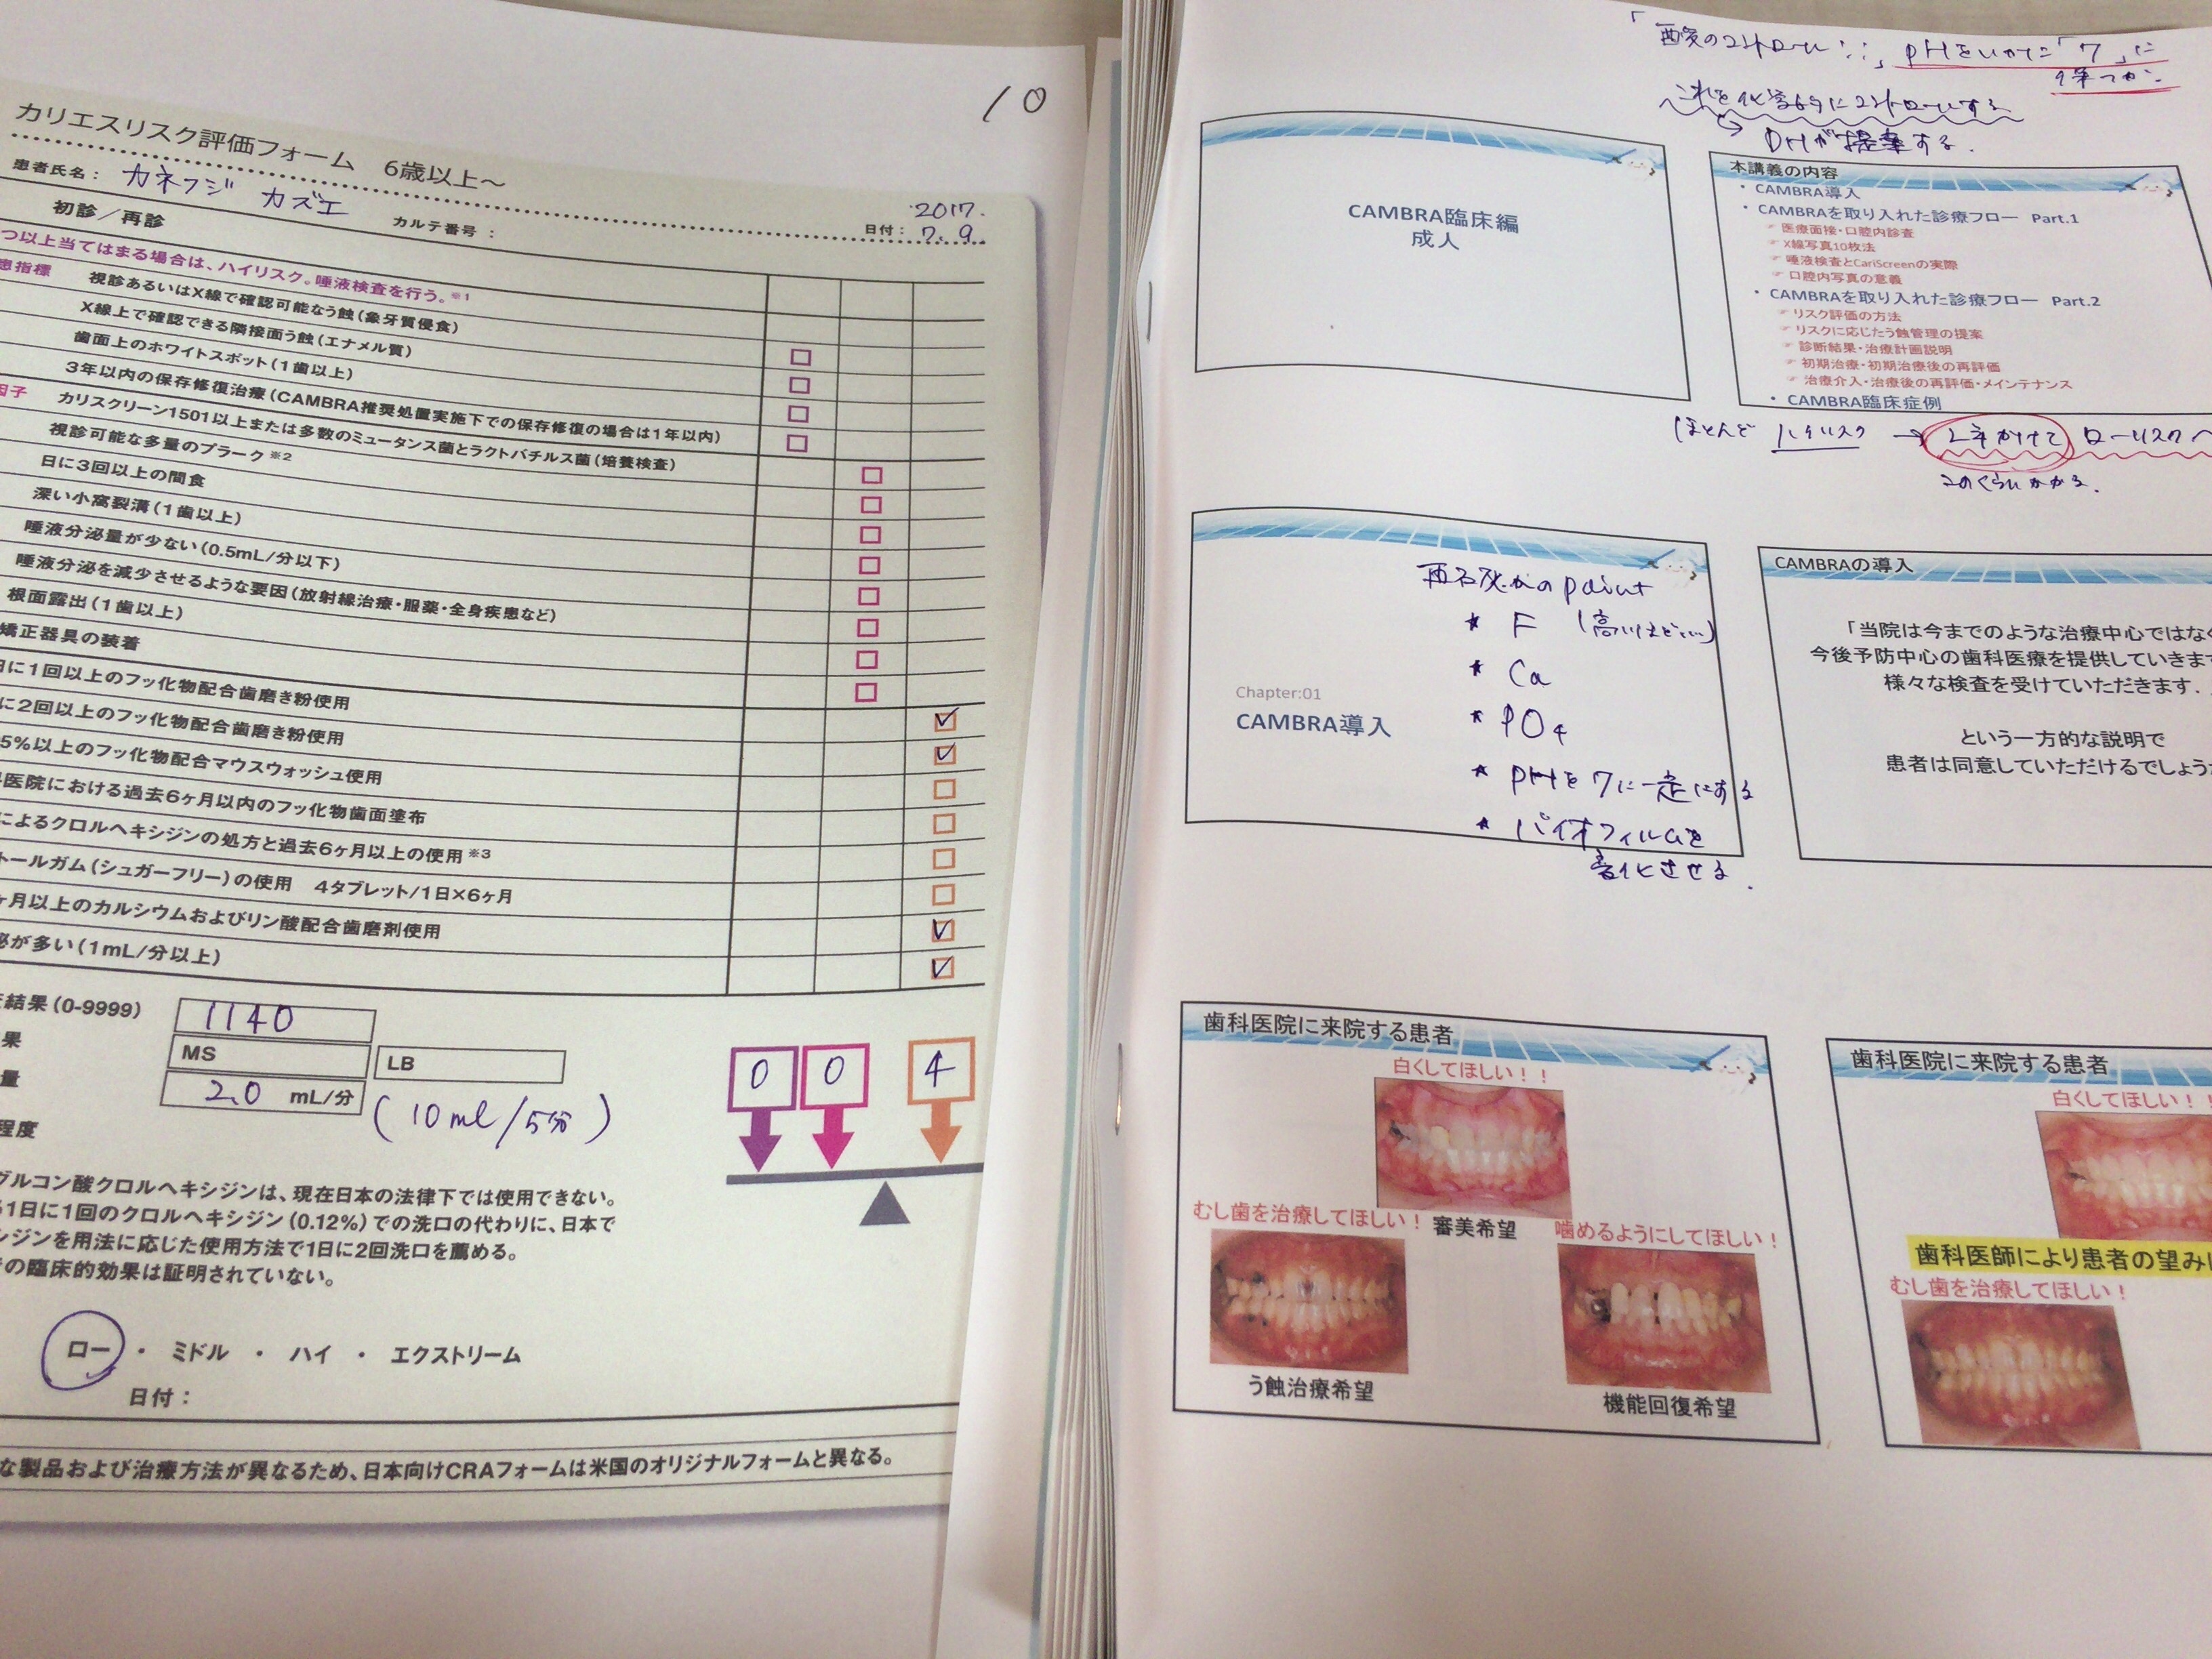 10
カリエスリスク評価フォーム 6歳以上～
患者氏名： カネフジ カズエ
初診／再診 カルテ番号： 日付： 2017. 7. 9.
つ以上当てはまる場合は、ハイリスク。唾液検査を行う。※1
患指標 視診あるいはX線で確認可能なう蝕（象牙質侵食）
X線上で確認できる隣接面う蝕（エナメル質）
歯面上のホワイトスポット（1歯以上）
3年以内の保存修復治療（CAMBRA推奨処置実施下での保存修復の場合は1年以内）
因子 カリスクリーン1501以上または多数のミュータンス菌とラクトバチルス菌（培養検査）
視診可能な多量のプラーク※2
日に3回以上の間食
深い小窩裂溝（1歯以上）
唾液分泌量が少ない（0.5mL/分以下）
唾液分泌を減少させるような要因（放射線治療・服薬・全身疾患など）
根面露出（1歯以上）
矯正器具の装着
日に1回以上のフッ化物配合歯磨き粉使用
に2回以上のフッ化物配合歯磨き粉使用
5%以上のフッ化物配合マウスウォッシュ使用
科医院における過去6ヶ月以内のフッ化物歯面塗布
によるクロルヘキシジンの処方と過去6ヶ月以上の使用※3
トールガム（シュガーフリー）の使用 4タブレット/1日×6ヶ月
ヶ月以上のカルシウムおよびリン酸配合歯磨剤使用
泌が多い（1mL/分以上）
結果（0-9999） 1140
果 MS LB
量 2.0 mL/分 (10ml/5分)
程度
0 0 4
グルコン酸クロルヘキシジンは、現在日本の法律下では使用できない。
1日に1回のクロルヘキシジン（0.12%）での洗口の代わりに、日本で
シジンを用法に応じた使用方法で1日に2回洗口を薦める。
の臨床的効果は証明されていない。
ロー ・ ミドル ・ ハイ ・ エクストリーム
日付：
な製品および治療方法が異なるため、日本向けCRAフォームは米国のオリジナルフォームと異なる。
pHをいかに「7」に
保つか
これを化学的にコントロールする
DHが提案する.
CAMBRA臨床編
成人
本講義の内容
・CAMBRA導入
・CAMBRAを取り入れた診療フロー Part.1
医療面接・口腔内診査
X線写真10枚法
唾液検査とCariScreenの実際
口腔内写真の意義
・CAMBRAを取り入れた診療フロー Part.2
リスク評価の方法
リスクに応じたう蝕管理の提案
診断結果・治療計画説明
初期治療・初期治療後の再評価
治療介入・治療後の再評価・メインテナンス
・CAMBRA臨床症例
ほとんど ハイリスク → 2年かけて ローリスクへ
このくらいかかる.
Chapter:01
CAMBRA導入
再石灰化のpoint
* F
* Ca
* PO4
* pHを7に一定にする
* バイオフィルムを
善化させる.
CAMBRAの導入
「当院は今までのような治療中心ではなく
今後予防中心の歯科医療を提供していきます
様々な検査を受けていただきます.
という一方的な説明で
患者は同意していただけるでしょう
歯科医院に来院する患者
白くしてほしい！！
審美希望
むし歯を治療してほしい！
う蝕治療希望
噛めるようにしてほしい！
機能回復希望
歯科医院に来院する患者
白くしてほしい！！
歯科医師により患者の望みは
むし歯を治療してほしい！